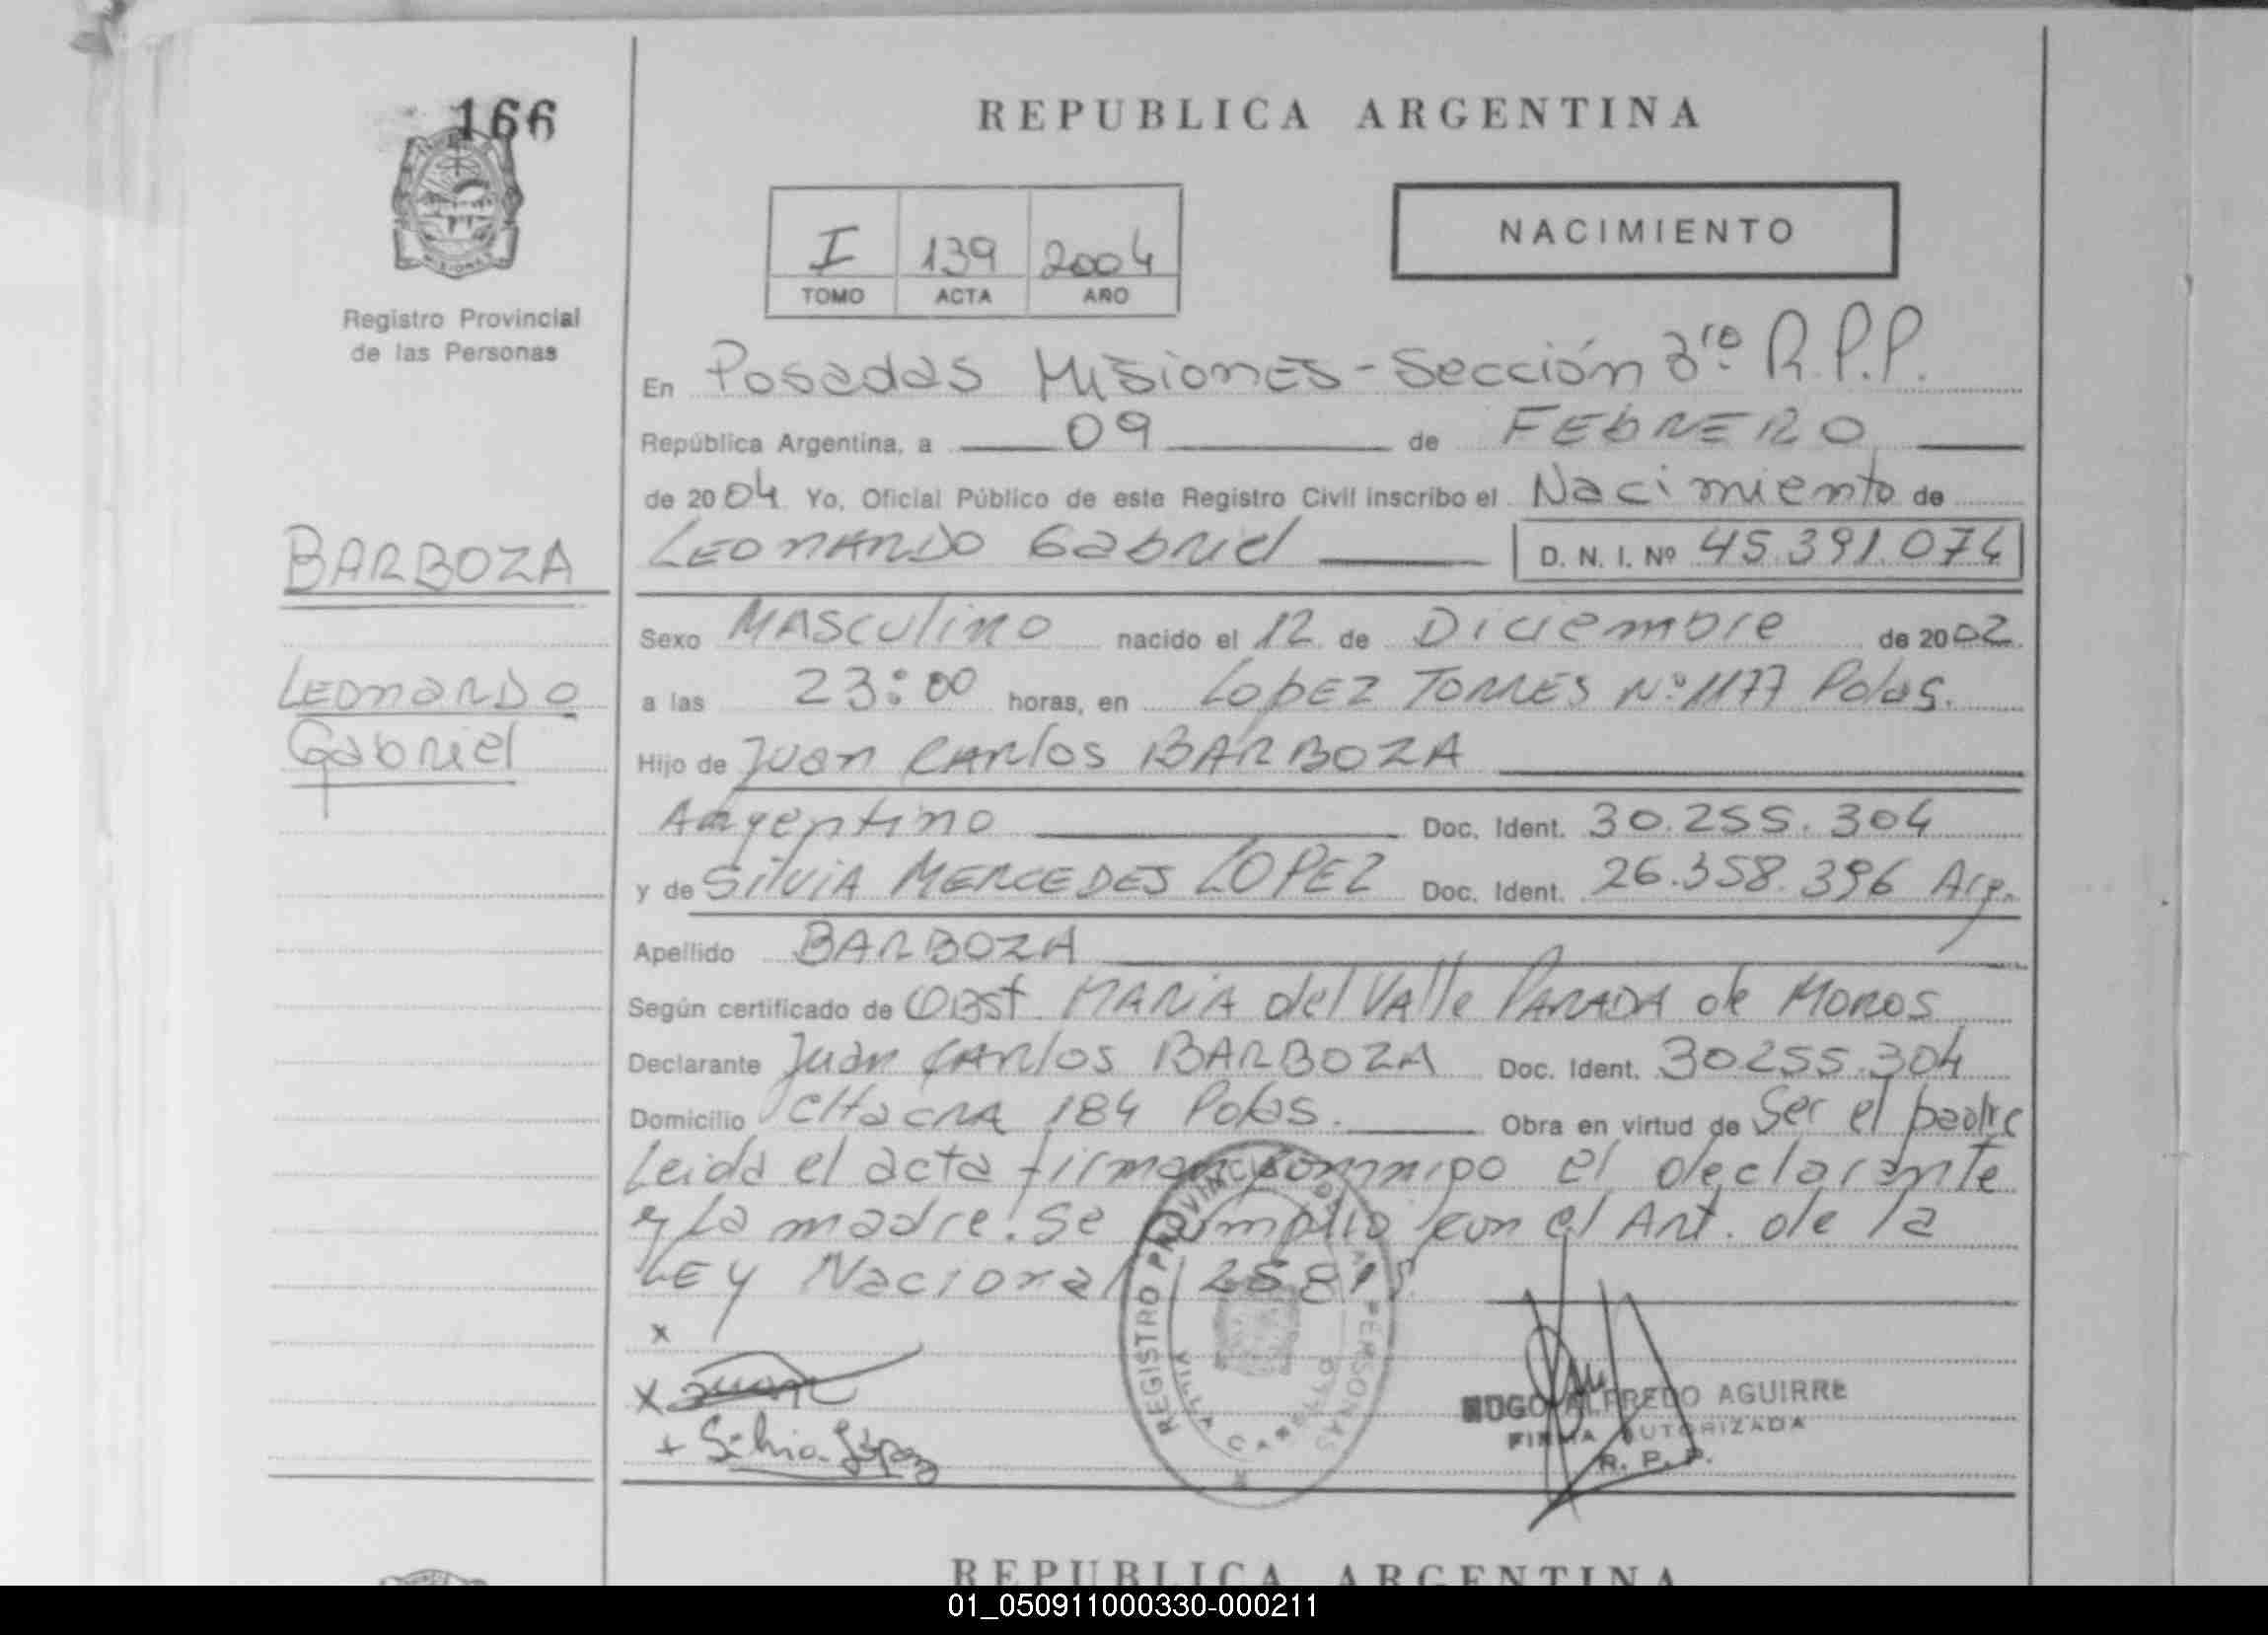 166
MISIONES
Registro Provincial
de las Personas
BARBOZA
LEONARDO
Gabriel
REPUBLICA ARGENTINA
I 139 2004
TOMO ACTA AÑO
NACIMIENTO
En Posadas Misiones - Sección 3ra. R.P.P.
República Argentina, a 09 de FEBRERO
de 2004 Yo, Oficial Público de este Registro Civil inscribo el Nacimiento de
LEONARDO Gabriel D. N. I. Nº 45.391.074
Sexo MASCULINO nacido el 12 de Diciembre de 2002
a las 23:00 horas, en LOPEZ TORRES Nº 1177 Pdas.
Hijo de Juan CARLOS BARBOZA
Argentino Doc. Ident. 30.255.304
y de SILVIA MERCEDES LOPEZ Doc. Ident. 26.358.396 Arg.
Apellido BARBOZA
Según certificado de Obst. MARIA del VAlle PARADA de MOROS
Declarante Juan CARLOS BARBOZA Doc. Ident. 30255.304
Domicilio CHACRA 184 Pdas. Obra en virtud de Ser el padre
Leida el acta firman conmigo el declarante
y La madre. Se cumplio con el Art. de la
LEY Nacional 25819
x
x Juan
+ Silvia López
REGISTRO PROVINCIAL DE LAS PERSONAS
VILLA CABELLO
HUGO ALFREDO AGUIRRE
FIRMA AUTORIZADA
R. P. P.
REPUBLICA ARGENTINA
01_050911000330-000211